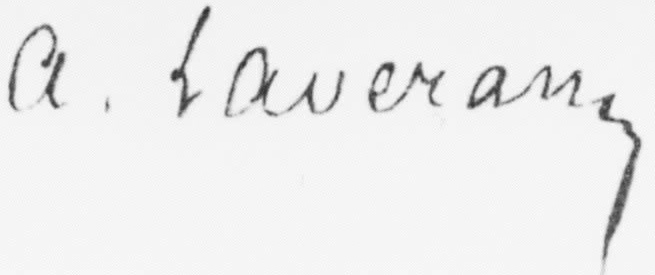 A. Laveran